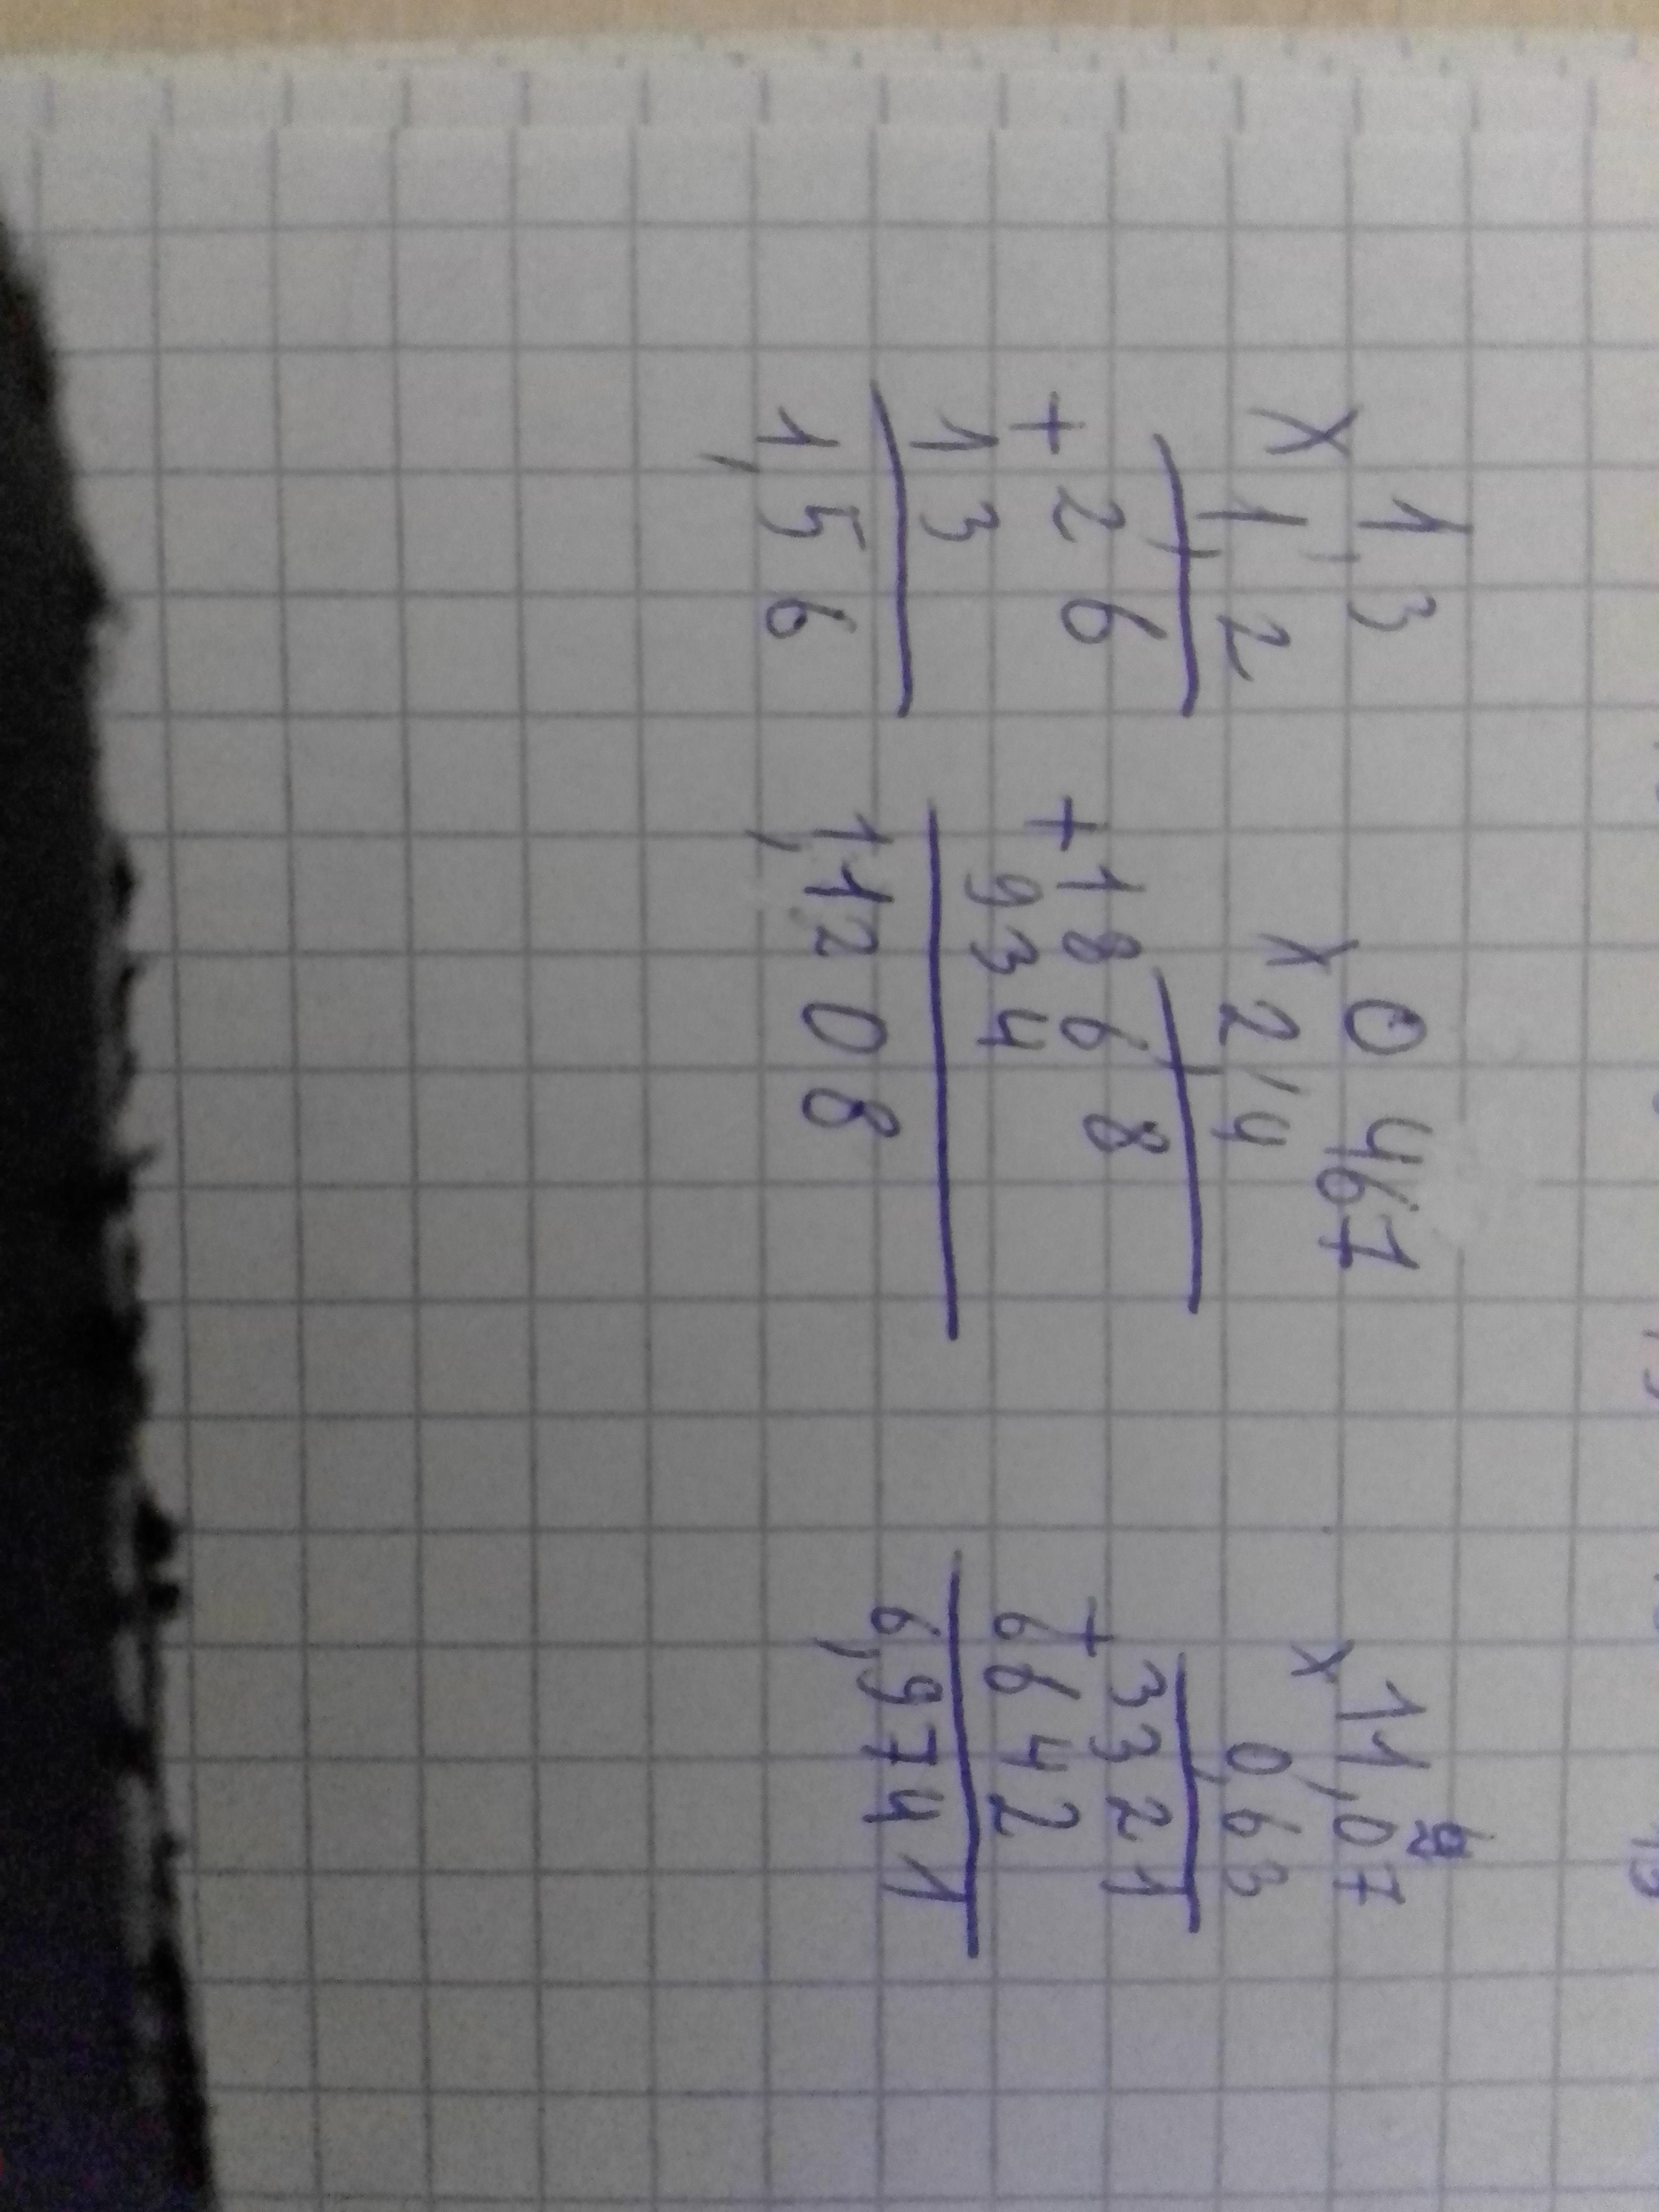 1,3
× 1,2
+ 2 6
1 3
1,5 6
0 467
× 2,4
+ 1 8 6 8
9 3 4
1,12 0 8
× 11,07
0,63
+ 3321
6642
6,9741